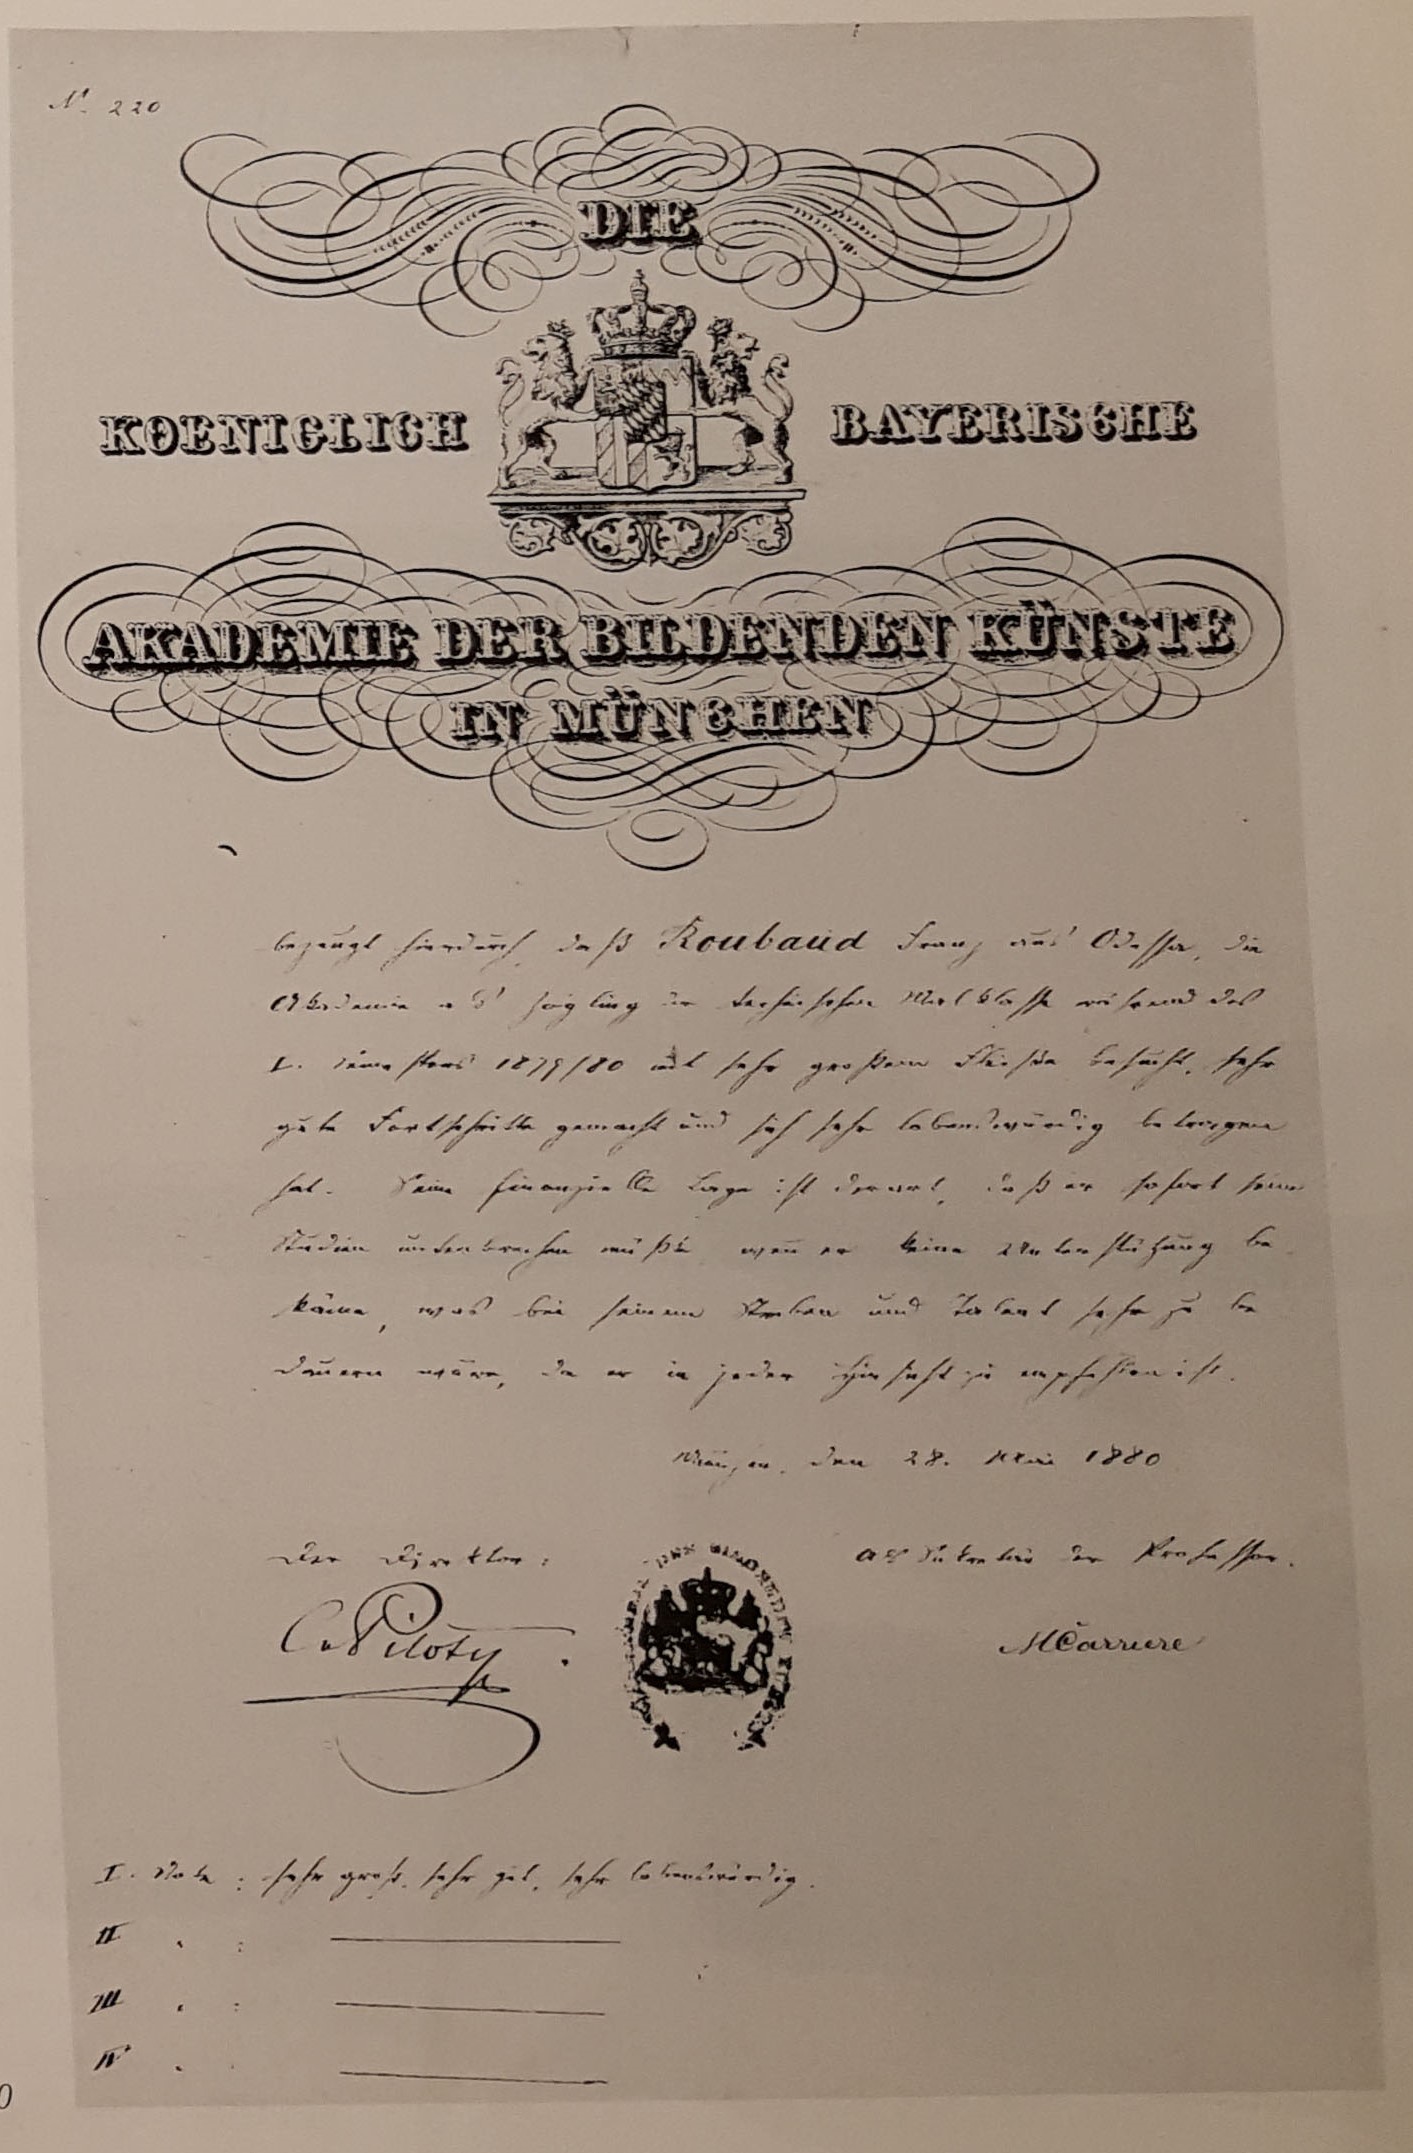 N. 220
DIE
KOENIGLICH BAYERISCHE
AKADEMIE DER BILDENDEN KÜNSTE
IN MÜNCHEN
bezeugt hierdurch, daß Roubaud Franz aus Odessa, die
Akademie als Zögling der technischen Malklasse während des
I. Semesters 1879/80 mit sehr großem Fleiße besucht, sehr
gute Fortschritte gemacht und sich sehr lobenswürdig betragen
hat. Seine finanzielle Lage ist derart, daß er sofort seine
Studien unterbrechen müßte, wen̄ er keine Unterstützung be
käme, was bei seinem Streben und Talent sehr zu be
dauern wäre, da er in jeder Hinsicht zu empfehlen ist.
München, den 28. Mai 1880
Der Direktor: Als Sekretär der Professor.
C v Piloty. MCarriere
I. Note: sehr groß, sehr gut, sehr lobenswürdig.
II " :
III " :
IV " :
0